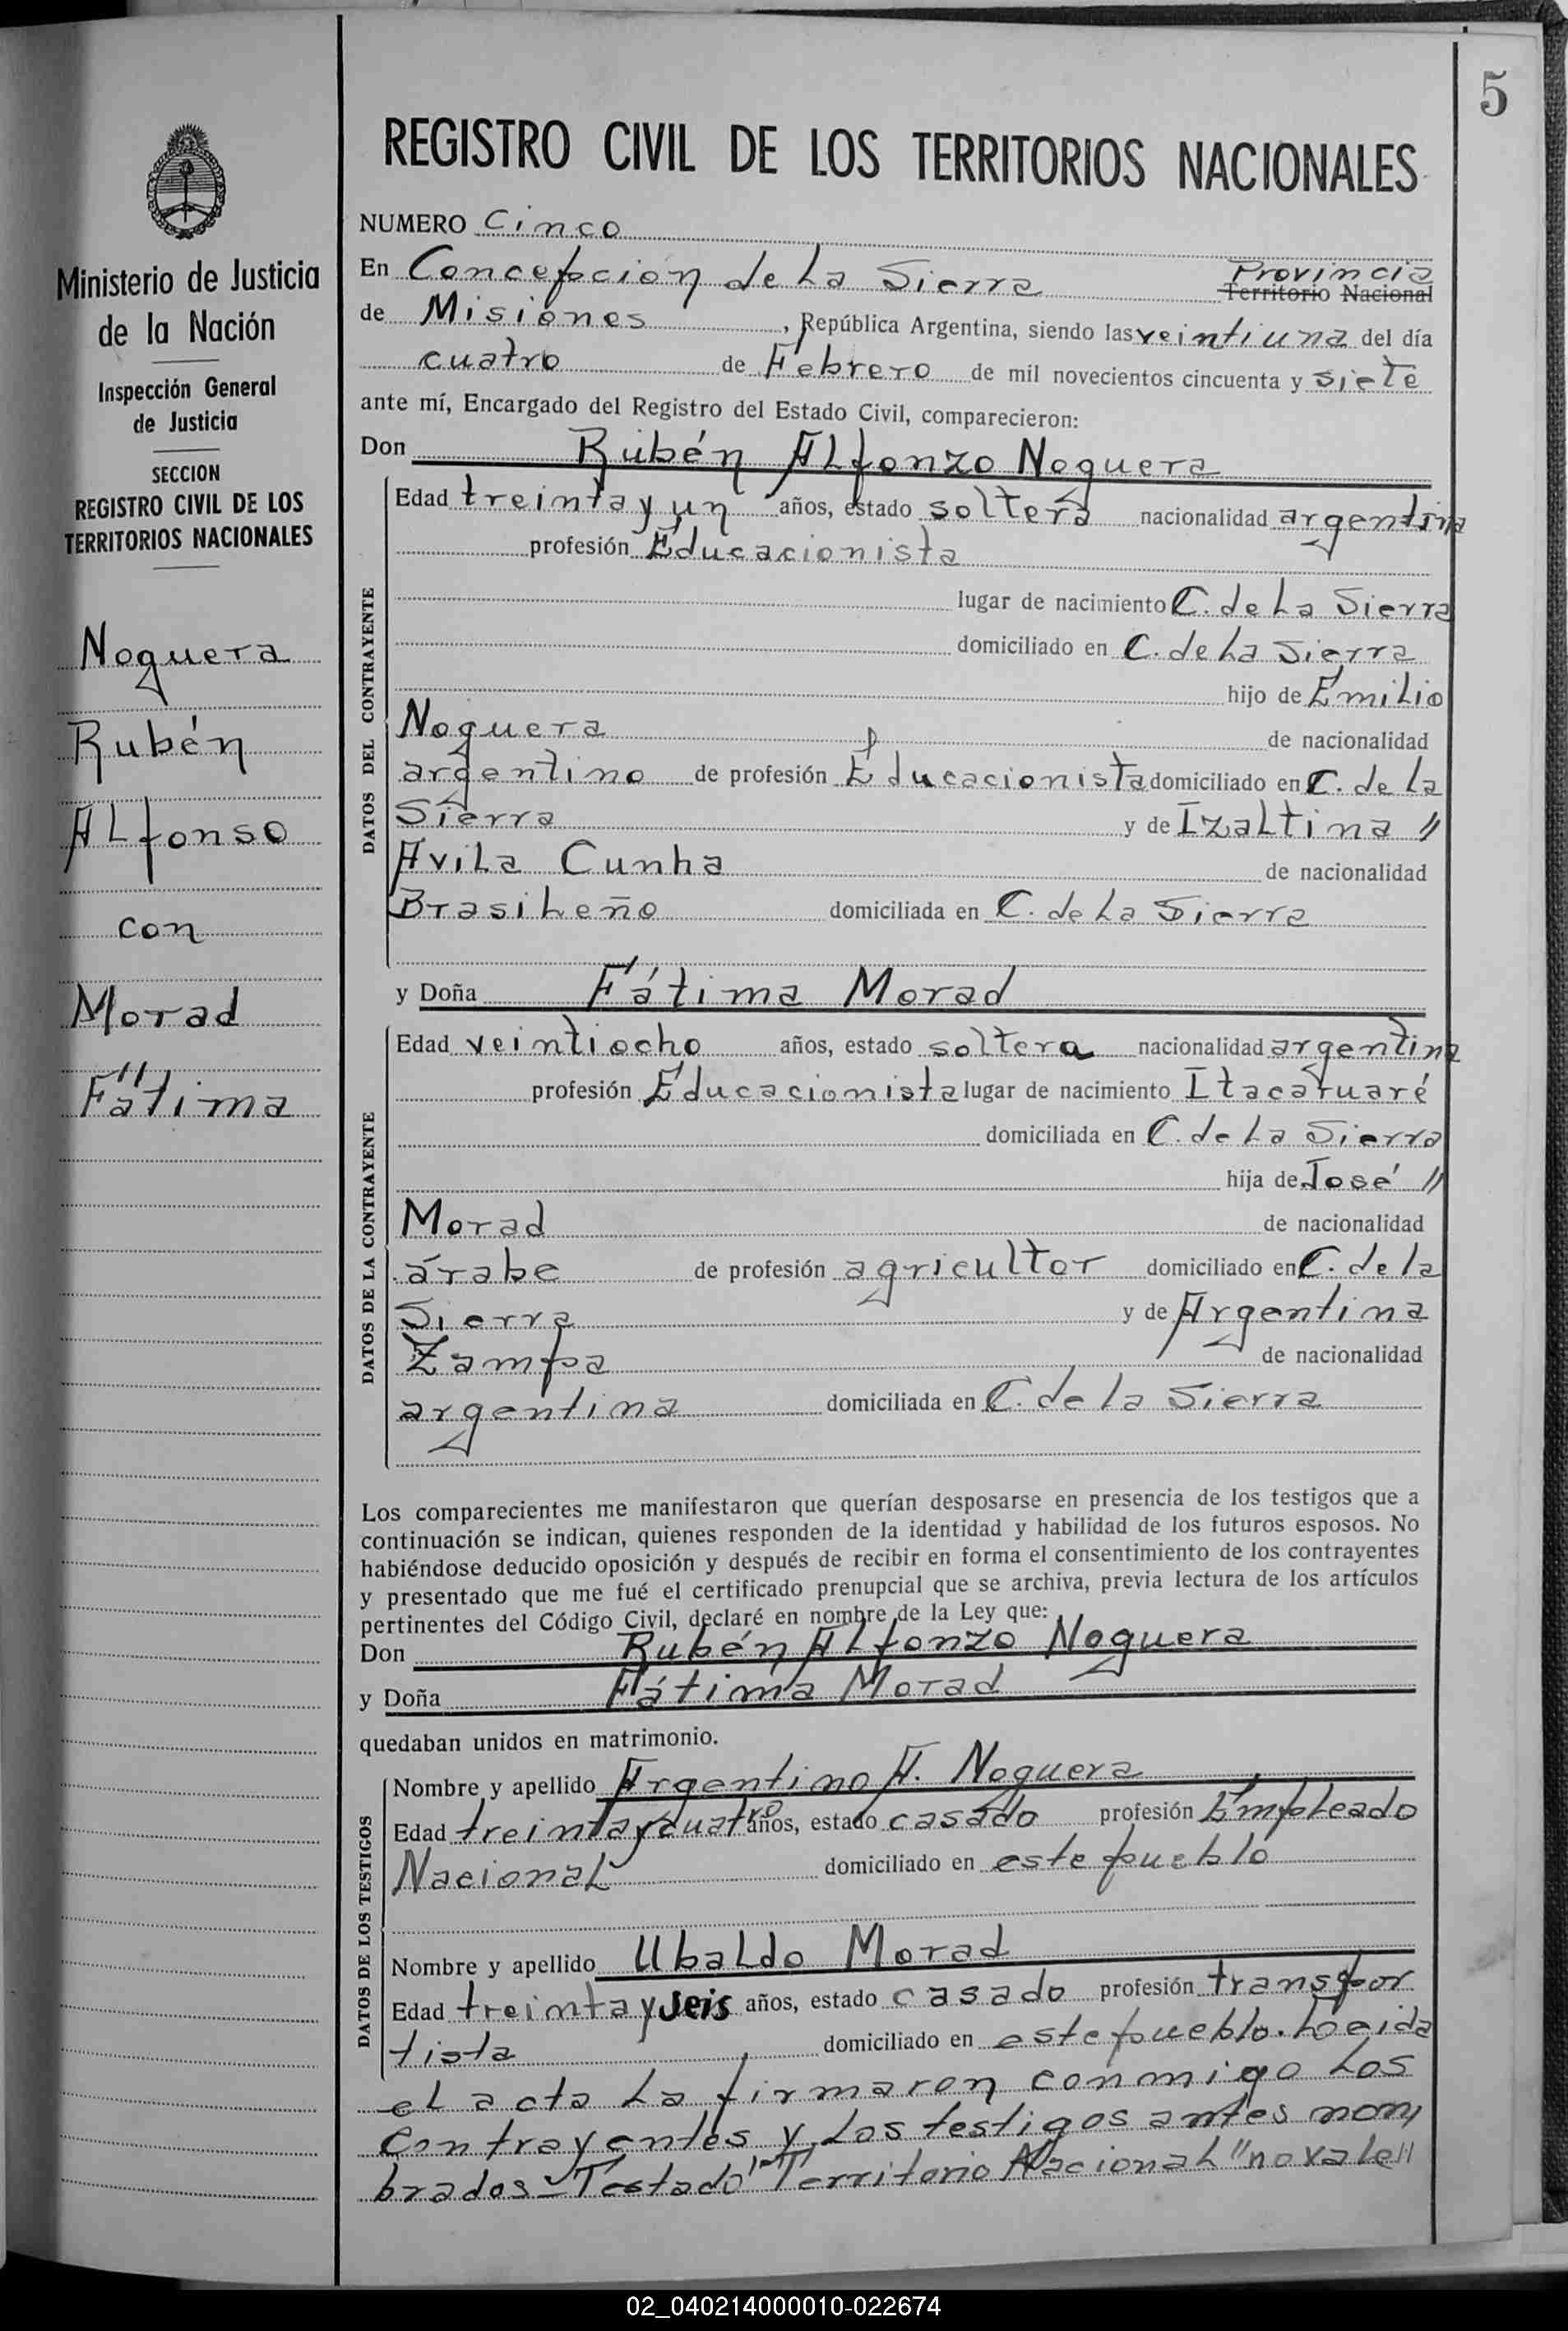 5
REGISTRO CIVIL DE LOS TERRITORIOS NACIONALES
Ministerio de Justicia
de la Nación
Inspección General
de Justicia
SECCION
REGISTRO CIVIL DE LOS
TERRITORIOS NACIONALES
Noguera
Rubén
Alfonso
con
Morad
Fátima
NUMERO Cinco
En Concepcion de La Sierra Provincia
Territorio Nacional
de Misiones, República Argentina, siendo las veintiuna del día
cuatro de Febrero de mil novecientos cincuenta y siete
ante mí, Encargado del Registro del Estado Civil, comparecieron:
Don Rubén Alfonzo Noguera
DATOS DEL CONTRAYENTE
Edad treinta y un años, estado soltera nacionalidad argentina
profesión Educacionista
lugar de nacimiento C. de La Sierra
domiciliado en C. de La Sierra
hijo de Emilio
Noguera de nacionalidad
argentino de profesión Educacionista domiciliado en C. de la
Sierra y de Izaltina "
Avila Cunha de nacionalidad
Brasileño domiciliada en C. de La Sierra
y Doña Fátima Morad
DATOS DE LA CONTRAYENTE
Edad veintiocho años, estado soltera nacionalidad argentina
profesión Educacionista lugar de nacimiento Itacaruaré
domiciliada en C. de La Sierra
hija de José "
Morad de nacionalidad
árabe de profesión agricultor domiciliado en C. de la
Sierra y de Argentina
Zampa de nacionalidad
argentina domiciliada en C. de la Sierra
Los comparecientes me manifestaron que querían desposarse en presencia de los testigos que a
continuación se indican, quienes responden de la identidad y habilidad de los futuros esposos. No
habiéndose deducido oposición y después de recibir en forma el consentimiento de los contrayentes
y presentado que me fué el certificado prenupcial que se archiva, previa lectura de los artículos
pertinentes del Código Civil, declaré en nombre de la Ley que:
Don Rubén Alfonzo Noguera
y Doña Fátima Morad
quedaban unidos en matrimonio.
DATOS DE LOS TESTIGOS
Nombre y apellido Argentino A. Noguera
Edad treinta y cuatro años, estado casado profesión Empleado
Nacional domiciliado en este pueblo
Nombre y apellido Ubaldo Morad
Edad treinta y seis años, estado casado profesión transpor
tista domiciliado en este pueblo. Leida
el acta La firmaron conmigo Los
Contrayentes y Los testigos antes nom
brados - Testado "Territorio Nacional" no vale"
02_040214000010-022674